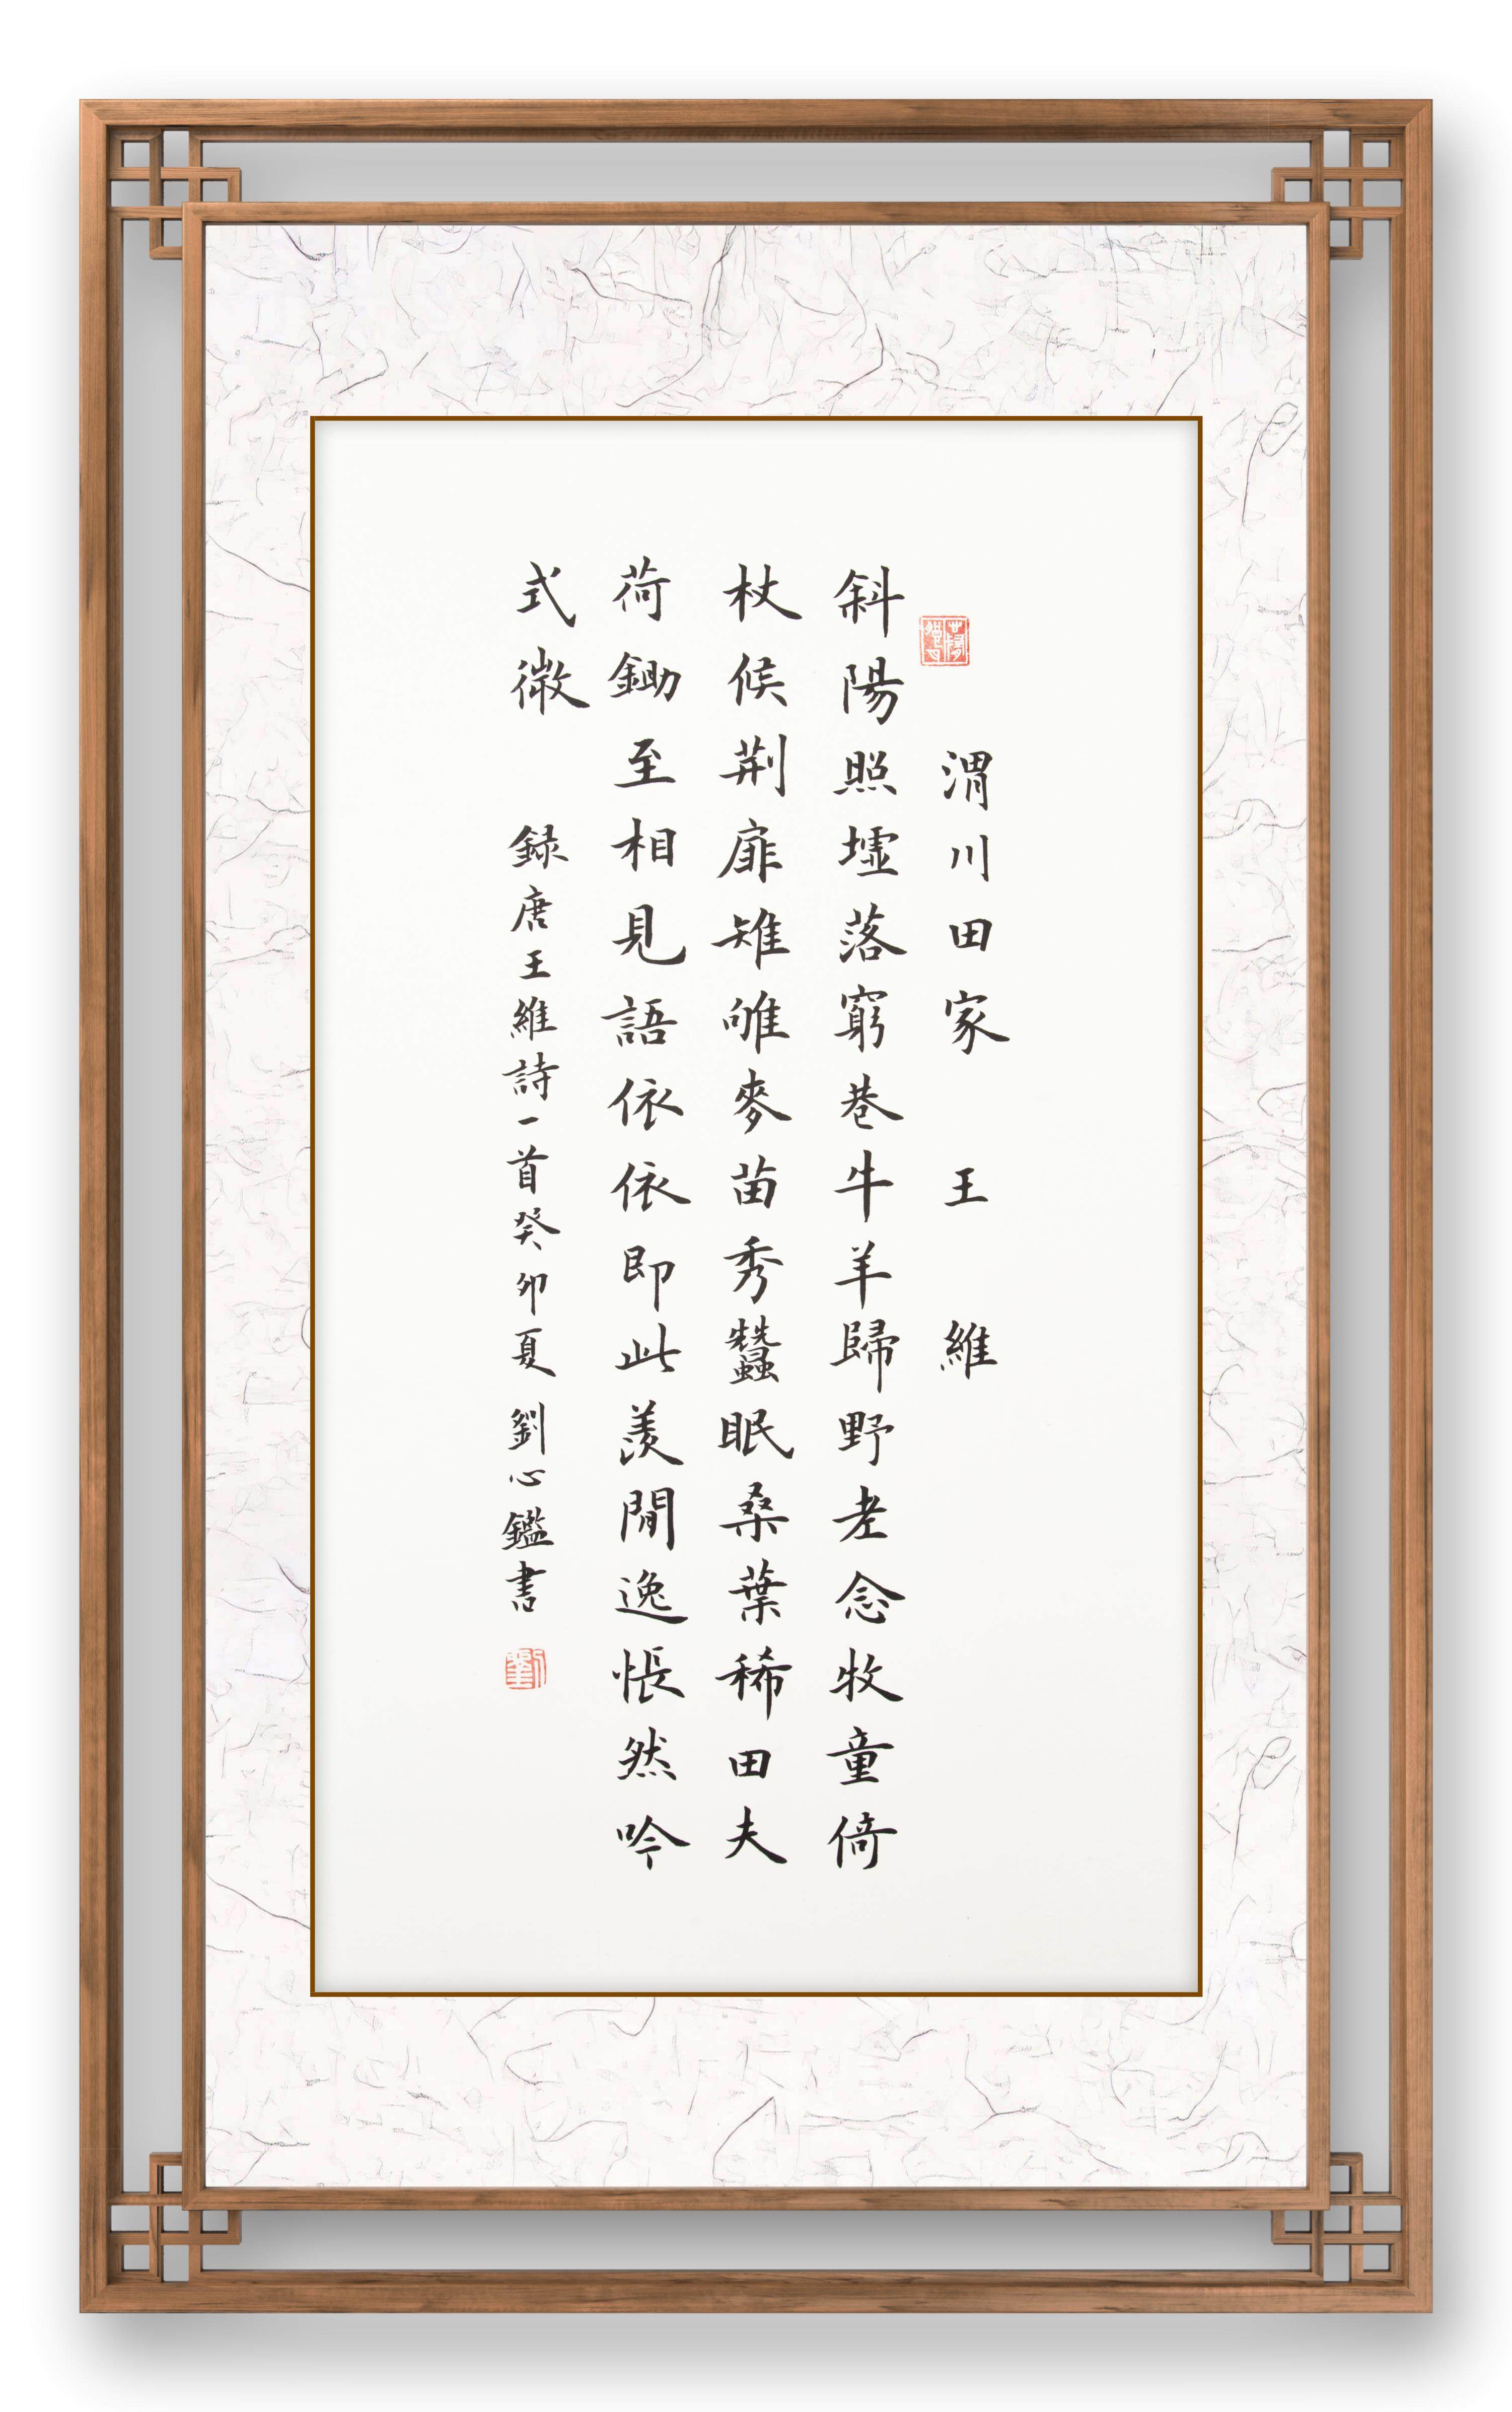 渭川田家 王維
斜陽照墟落窮巷牛羊歸野老念牧童倚
杖候荆扉雉雊麥苗秀蠶眠桑葉稀田夫
荷鋤至相見語依依即此羨閒逸悵然吟
式微
録唐王維詩一首癸卯夏劉心鑑書
劉